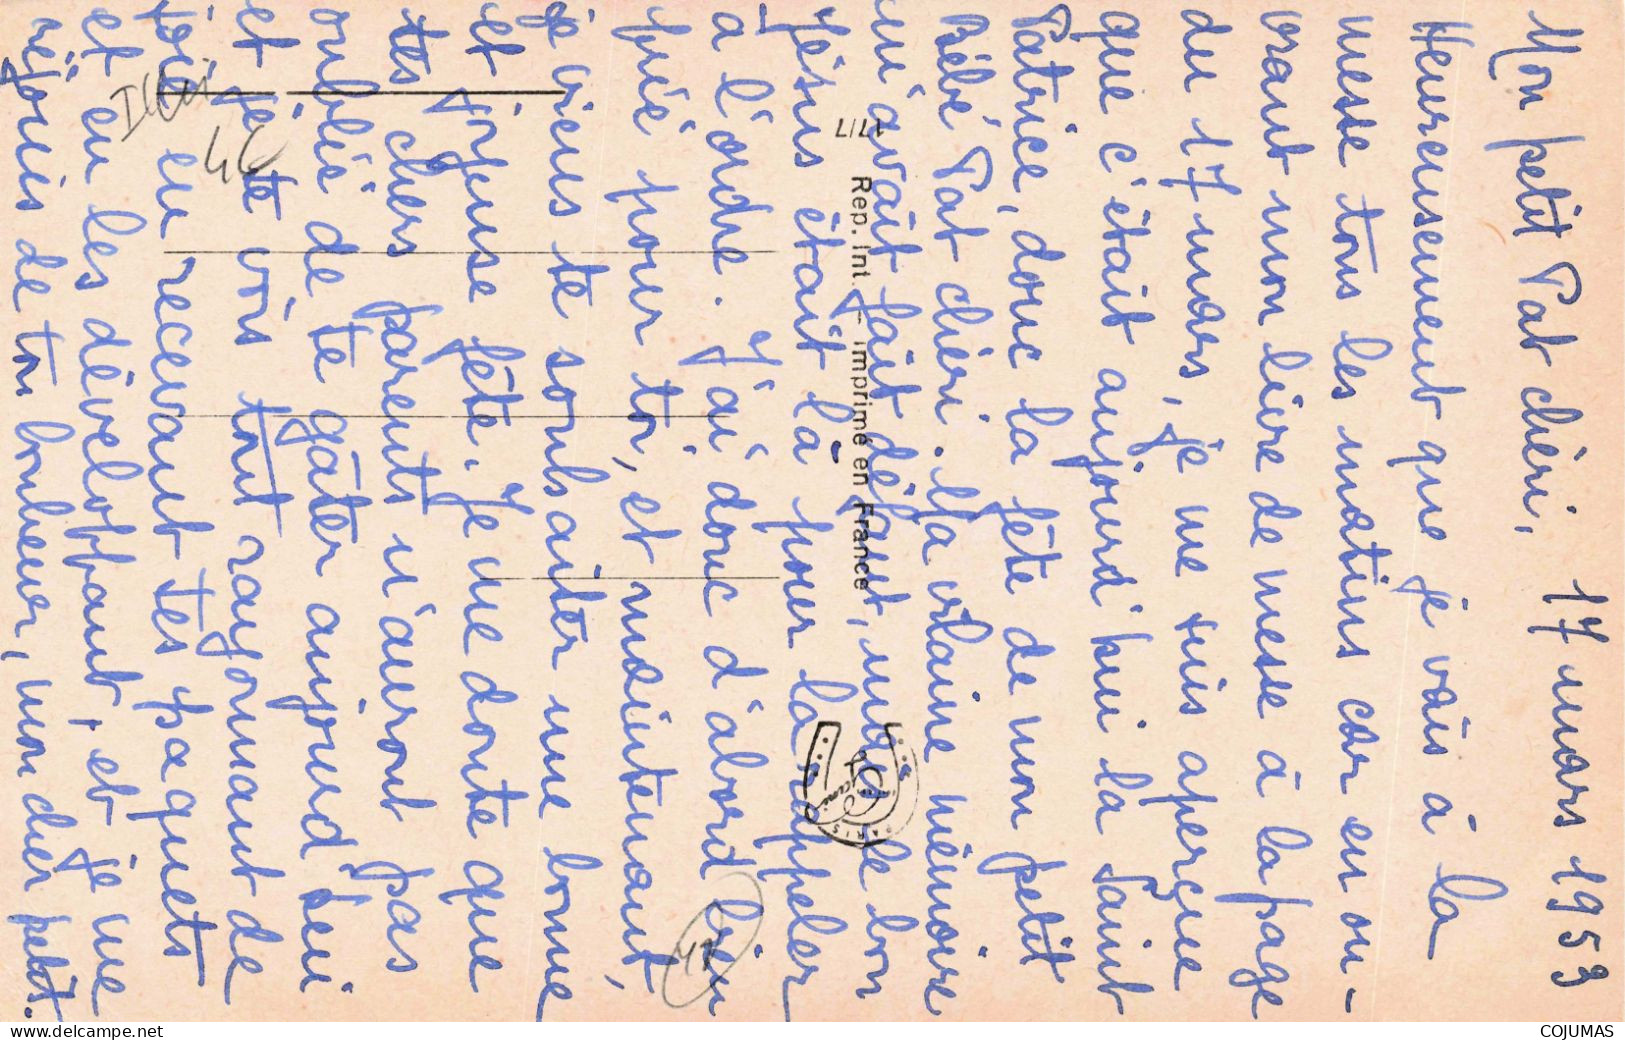 17 mars 1953
Mon petit Pat chéri,
Heureusement que je vais à la
messe tous les matins car en ou-
vrant mon livre de messe à la page
du 17 mars, je me suis aperçue
que c'était aujourd'hui la Saint
Patrice, donc la fête de mon petit
Bébé Pat chéri. Ma vilaine mémoire
m'avait fait défaut, mais le bon
Jésus était là pour la rappeler
à l'ordre. J'ai donc d'abord bien
prié pour toi, et maintenant,
je viens te souhaiter une bonne
et joyeuse fête. Je me doute que
tes chers parents n'auront pas
oublié de te gâter aujourd'hui
et je te vois tout rayonnant de
joie en recevant tes paquets
et en les développant, et je me
réjouis de ton bonheur, mon cher petit.
Rep. Int. — Imprimé en France
PARIS
46
delcampe.net
COJUMAS